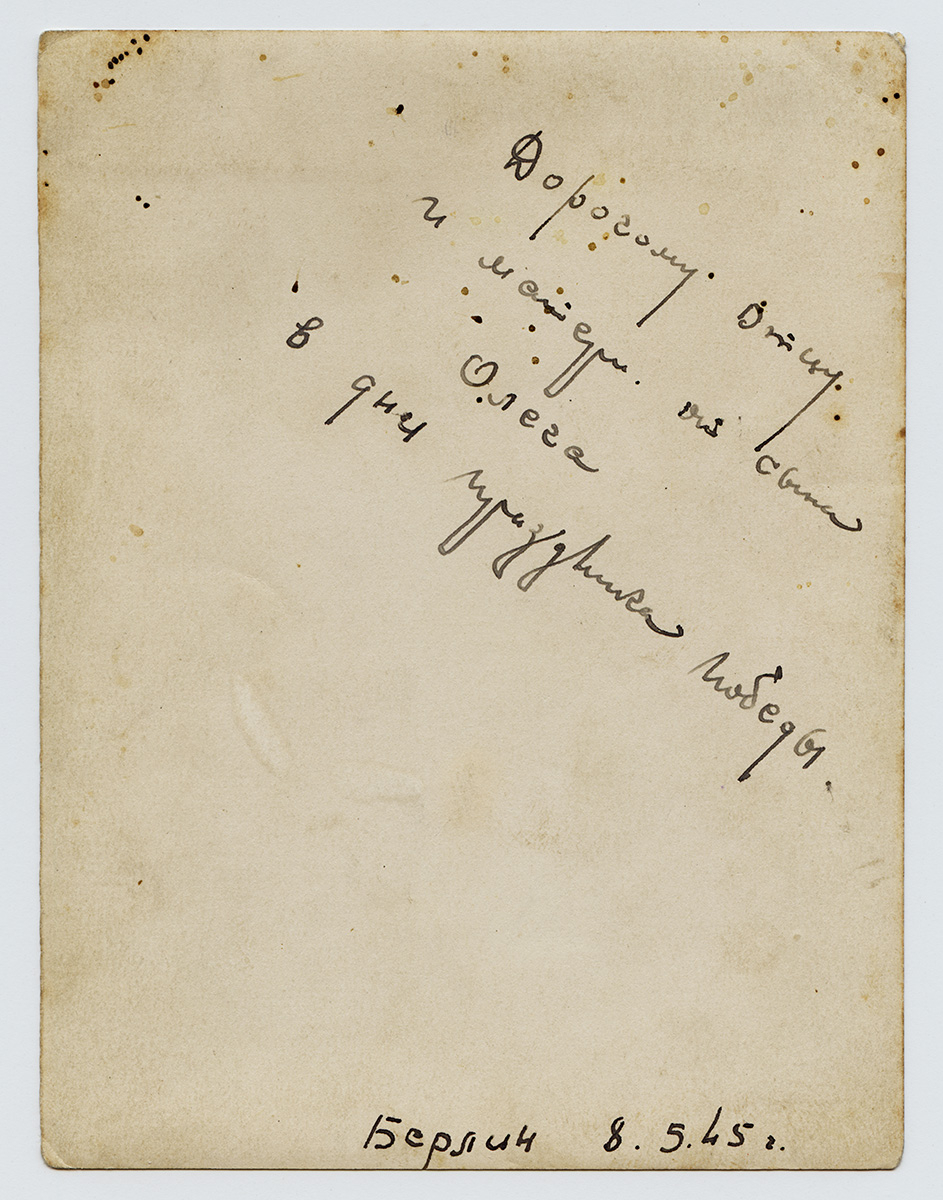 Дорогому Отцу.
и матери. от сына
Олега
в дни праздника победы.
Берлин 8. 5. 45 г.